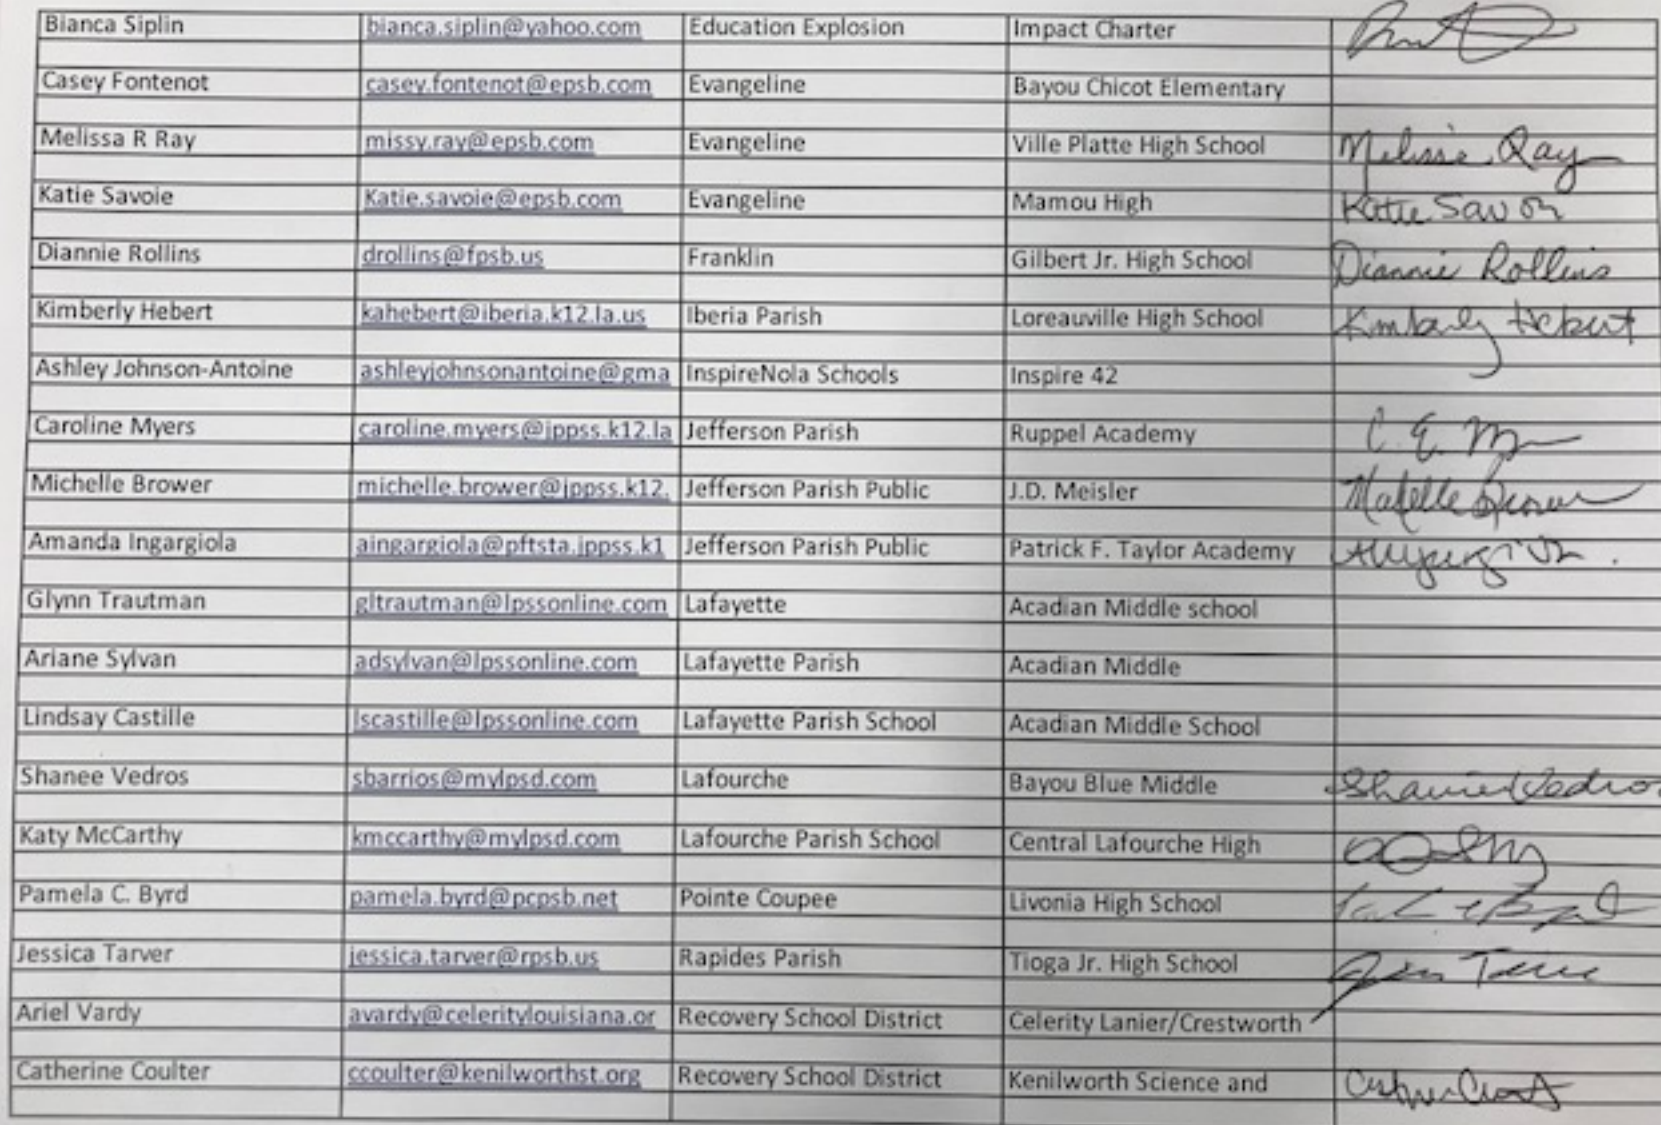 Bianca Siplin bianca.siplin@yahoo.com Education Explosion Impact Charter
Casey Fontenot casey.fontenot@epsb.com Evangeline Bayou Chicot Elementary
Melissa R Ray missy.ray@epsb.com Evangeline Ville Platte High School Melissa Ray
Katie Savoie Katie.savoie@epsb.com Evangeline Mamou High Katie Savoie
Diannie Rollins drollins@fpsb.us Franklin Gilbert Jr. High School Diannie Rollins
Kimberly Hebert kahebert@iberia.k12.la.us Iberia Parish Loreauville High School Kimberly Hebert
Ashley Johnson-Antoine ashleyjohnsonantoine@gma InspireNola Schools Inspire 42
Caroline Myers caroline.myers@jppss.k12.la Jefferson Parish Ruppel Academy C. E. M
Michelle Brower michelle.brower@jppss.k12. Jefferson Parish Public J.D. Meisler Michelle Brower
Amanda Ingargiola aingargiola@pftsta.jppss.k1 Jefferson Parish Public Patrick F. Taylor Academy
Glynn Trautman gltrautman@lpssonline.com Lafayette Acadian Middle school
Ariane Sylvan adsylvan@lpssonline.com Lafayette Parish Acadian Middle
Lindsay Castille lscastille@lpssonline.com Lafayette Parish School Acadian Middle School
Shanee Vedros sbarrios@mylpsd.com Lafourche Bayou Blue Middle Shanee Vedros
Katy McCarthy kmccarthy@mylpsd.com Lafourche Parish School Central Lafourche High
Pamela C. Byrd pamela.byrd@pcpsb.net Pointe Coupee Livonia High School
Jessica Tarver jessica.tarver@rpsb.us Rapides Parish Tioga Jr. High School
Ariel Vardy avardy@celeritylouisiana.or Recovery School District Celerity Lanier/Crestworth
Catherine Coulter ccoulter@kenilworthst.org Recovery School District Kenilworth Science and